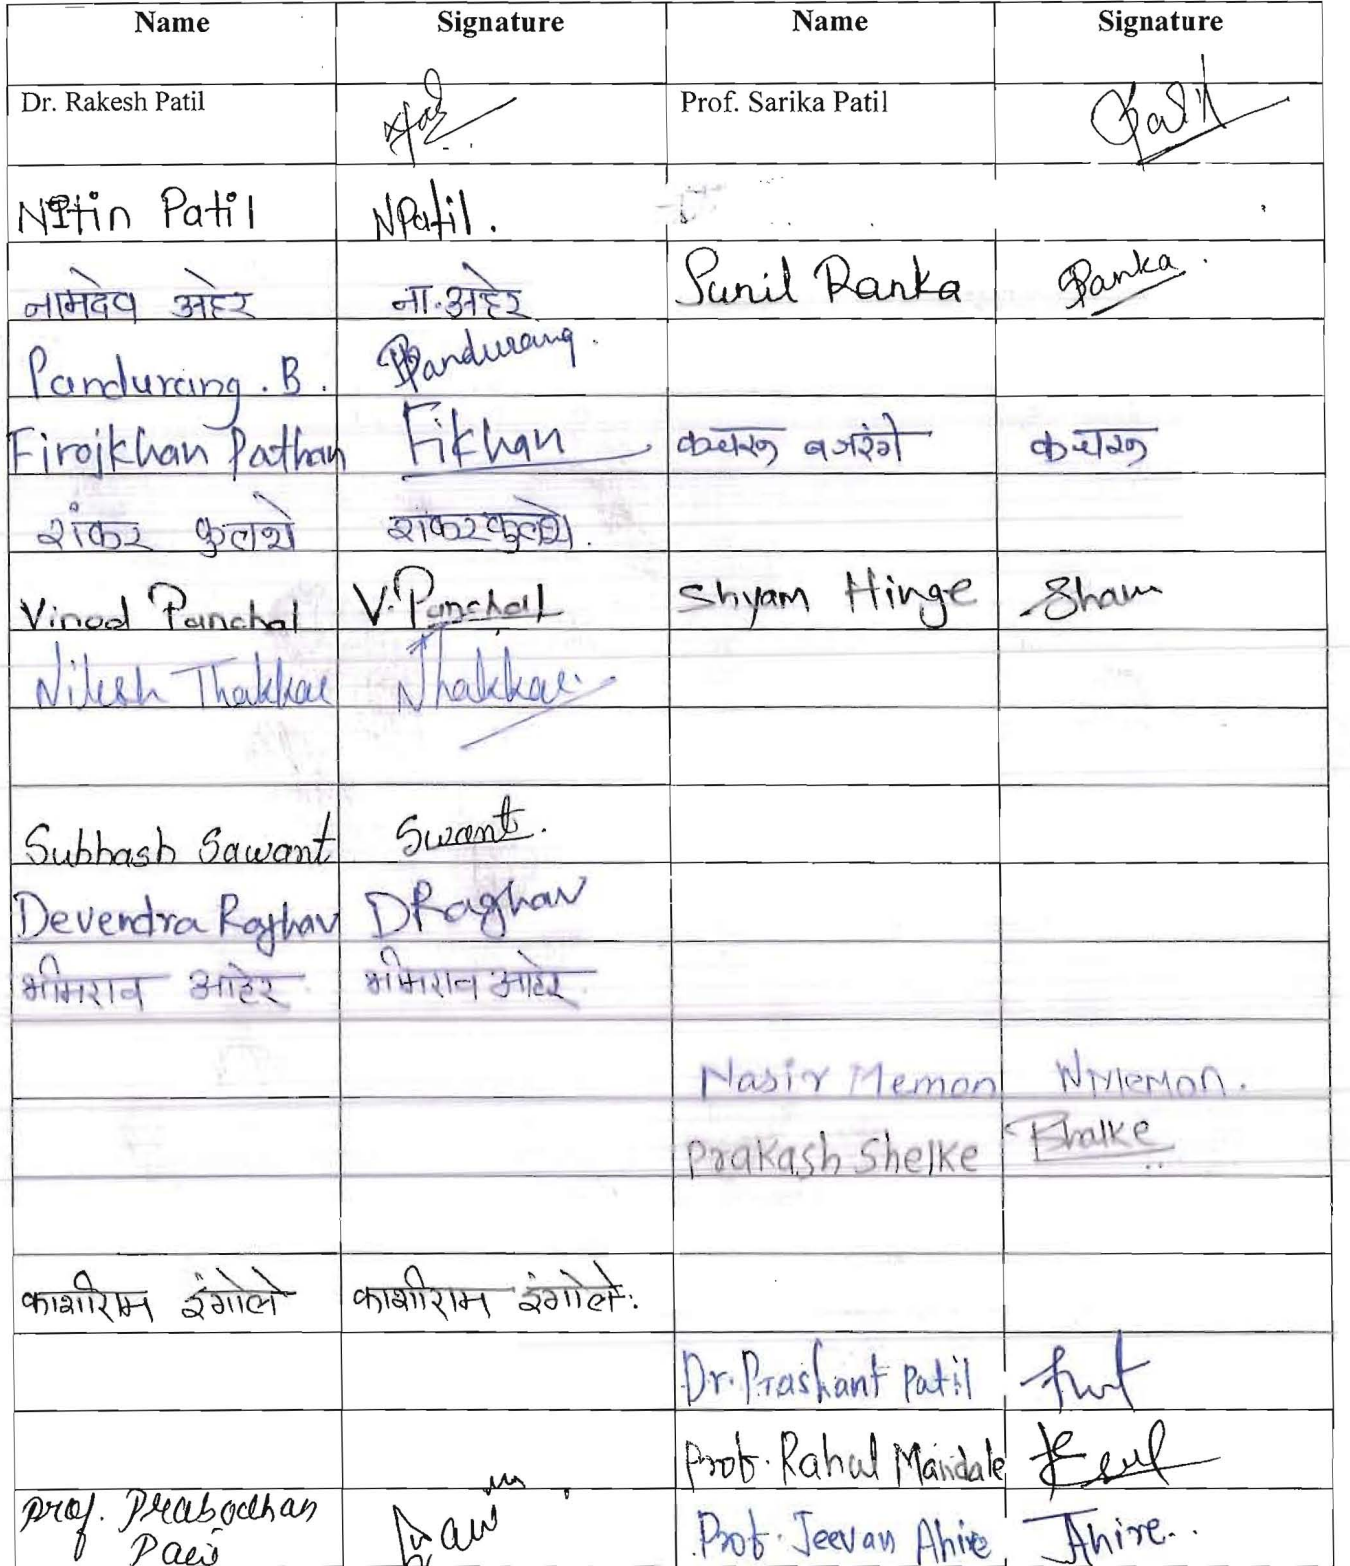 Name Signature Name Signature
Dr. Rakesh Patil Prof. Sarika Patil Patil
Nitin Patil NPatil.
नामदेव अहेर ना.अहेर Sunil Ranka Ranka
Pandurang. B. Pandurang.
Firojkhan Pathan Fikhan कचरू बजरंगे कचरू
शंकर कुलथे शंकर कुलथे.
Vinod Panchal V. Panchal Shyam Hinge Sham
Nilesh Thakkar NThakkar.
Subhash Sawant Swant.
Devendra Raghav DRaghav
भीमराव आहेर भीमराव आहेर
Nasir Memon NMemon.
Prakash Shelke
काशीराम इंगोले काशीराम इंगोले.
Dr. Prashant Patil
Prof. Rahul Mandale
Prof. Prabodhan Prof. Jeevan Ahire Ahire..